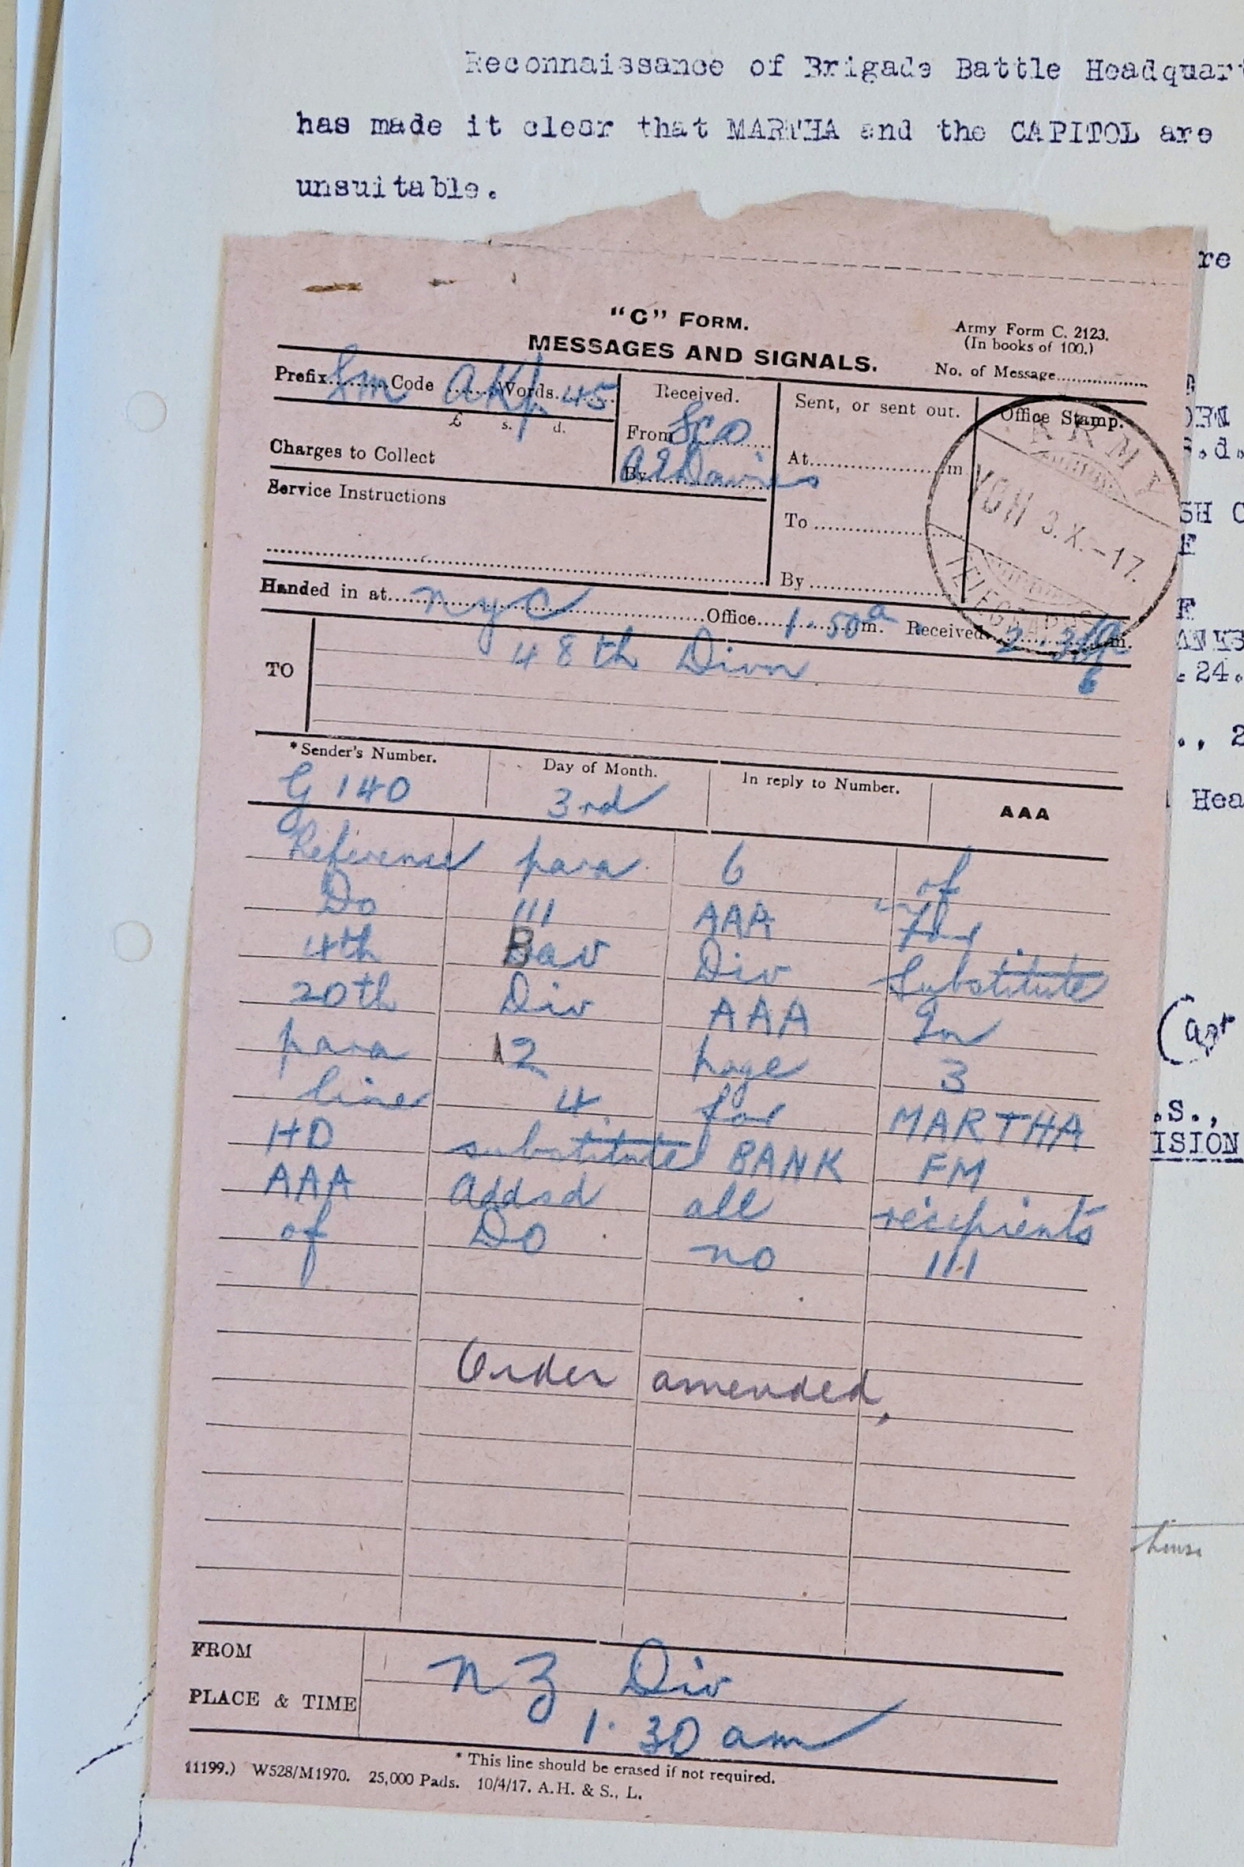 Reconnaissance of Brigade Battle Headquart
has made it clear that MARTHA and the CAPITOL are
unsuitable.
re
"C" FORM.
MESSAGES AND SIGNALS.
Army Form C. 2123.
(In books of 100.)
No. of Message
Prefix Sm Code AKP Words 45
£ s. d.
Charges to Collect
Service Instructions
Received.
From
By Davies
Sent, or sent out.
At m
To
By
Office Stamp.
ARMY
YGH 3.X.-17.
TELEGRAPHS
Handed in at NYC Office 1.50a m. Received m.
TO 48th Divn
*Sender's Number. Day of Month. In reply to Number. AAA
G 140 3rd
Reference para 6 of
Do 111 AAA For
4th Bav Div Substitute
20th Div AAA In
para 12 page 3
line 4 for MARTHA
HD substitute BANK FM
AAA Addsd all recipients
of Do no 111
Order amended,
FROM NZ Div
PLACE & TIME 1.30 am
* This line should be erased if not required.
11199.) W528/M1970. 25,000 Pads. 10/4/17. A.H. & S., L.
ORN
S.d.
SH C
F
F
ANKS
.24.
., 2
Hea
Capt
.S.,
ISION